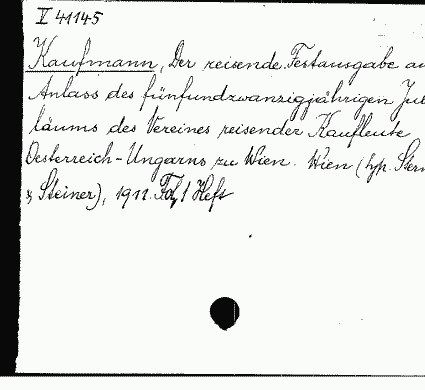 V 41145
Kaufmann, Der reisende. Festausgabe au
Anlass des fünfundzwanzigjährigen Jub
läums des Vereines reisender Kaufleute
Oesterreich-Ungarns zu Wien. Wien (typ. Stern
& Steiner), 1911. Fol, 1 Heft